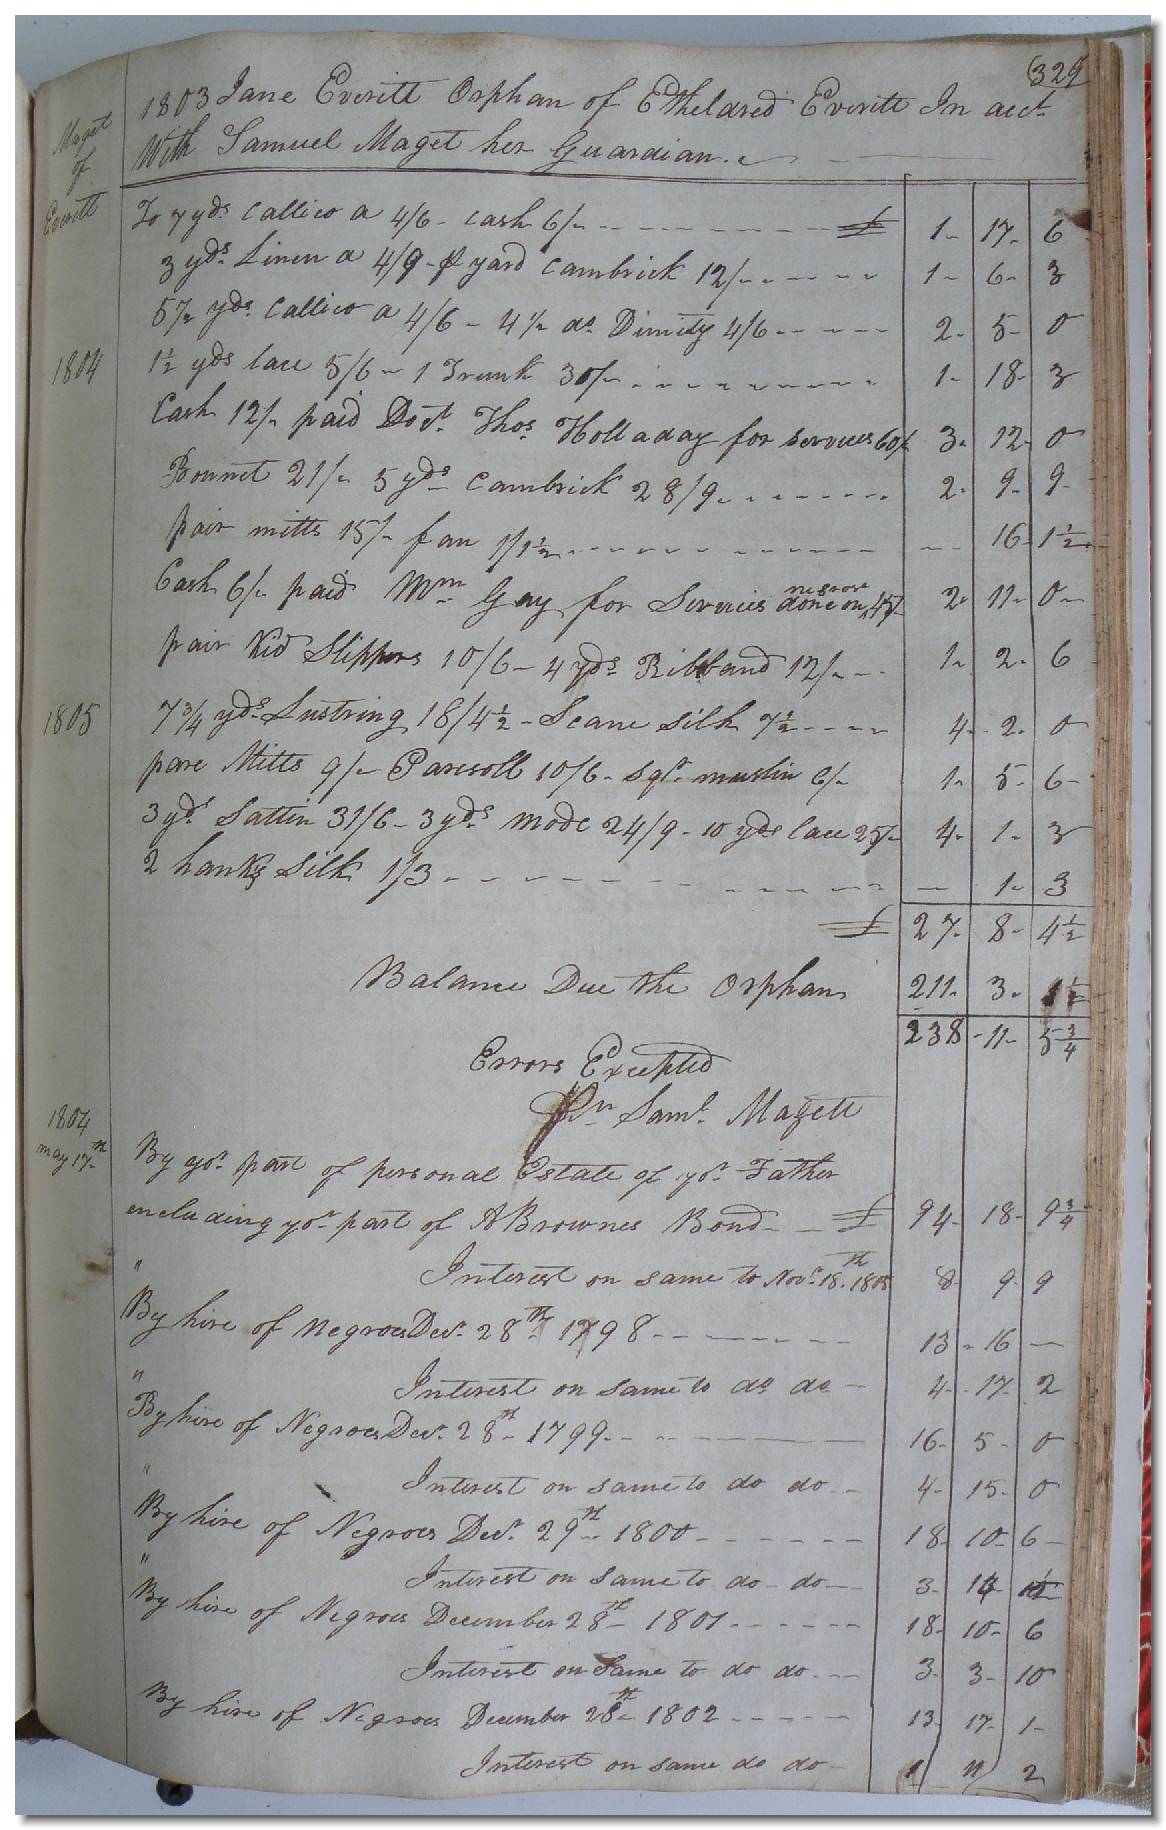 (329
Maget
of
Everitt
1803 Jane Everitt Orphan of Etheldred Everitt In acct
With Samuel Maget her Guardian
To 7 yds Callico a 4/6 - cash 6/- £ 1 - 17 - 6
3 yds Linen a 4/9 - yard cambrick 12/- 1 - 6 - 3
5½ yds Callico a 4/6 - 4½ do Dimity 4/6 2 - 5 - 0
1804 1½ yds lace 5/6 - 1 Trunk 30/- 1 - 18 - 3
Cash 12/- paid Doct. Thos Holladay for services 60/- 3 - 12 - 0
Bonnet 21/- 5 yds cambrick 28/9 2 - 9 - 9
pair mitts 15/- fan 1/1½ 16 - 1½
Cash 6/- paid Wm Gay for Services done on negroes 45/- 2 - 11 - 0
pair Kid Slippers 10/6 - 4 yds Ribband 12/- 1 - 2 - 6
1805 7¾ yds Lustring 18/4½ - Scane Silk 7½ 4 - 2 - 0
pare Mitts 9/- Paresoll 10/6 - sqr muslin 6/- 1 - 5 - 6
3 yds Sattin 31/6 - 3 yds mode 24/9 - 10 yds lace 25/- 4 - 1 - 3
2 hanks Silk 1/3 - 1 - 3
£ 27 - 8 - 4½
Balance Due the Orphan 211 - 3 -
238 - 11 - 5¾
Errors Excepted
Saml Magett
1804
may 17th
By yor part of personal Estate of yor Father
including yor part of A Brownes Bond £ 94 - 18 - 9¾
" Interest on same to Novr 18th 1805 8 - 9 - 9
By hire of Negroes Decr 28th 1798 13 - 16 -
" Interest on same to do do 4 - 17 2
By hire of Negroes Decr 28th 1799 16 - 5 - 0
" Interest on same to do do 4 - 15 - 0
By hire of Negroes Decr 29th 1800 18 - 10 - 6
" Interest on same to do - do 3 - 14
By hire of Negroes December 28th 1801 18 - 10 - 6
Interest on same to do do 3 - 3 - 10
By hire of Negroes December 28th 1802 13 - 17 - 1
Interest on same do do 2